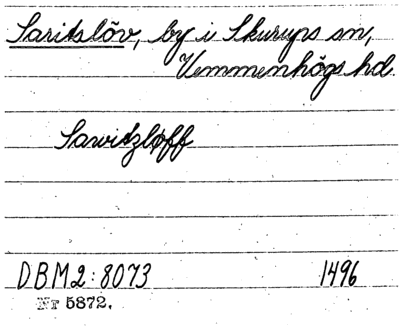 Saritslöv, by i Skurups sn,
Vemmenhögs hd.
Sawidzløff
DBM2:8073 1496
Nr 5872.